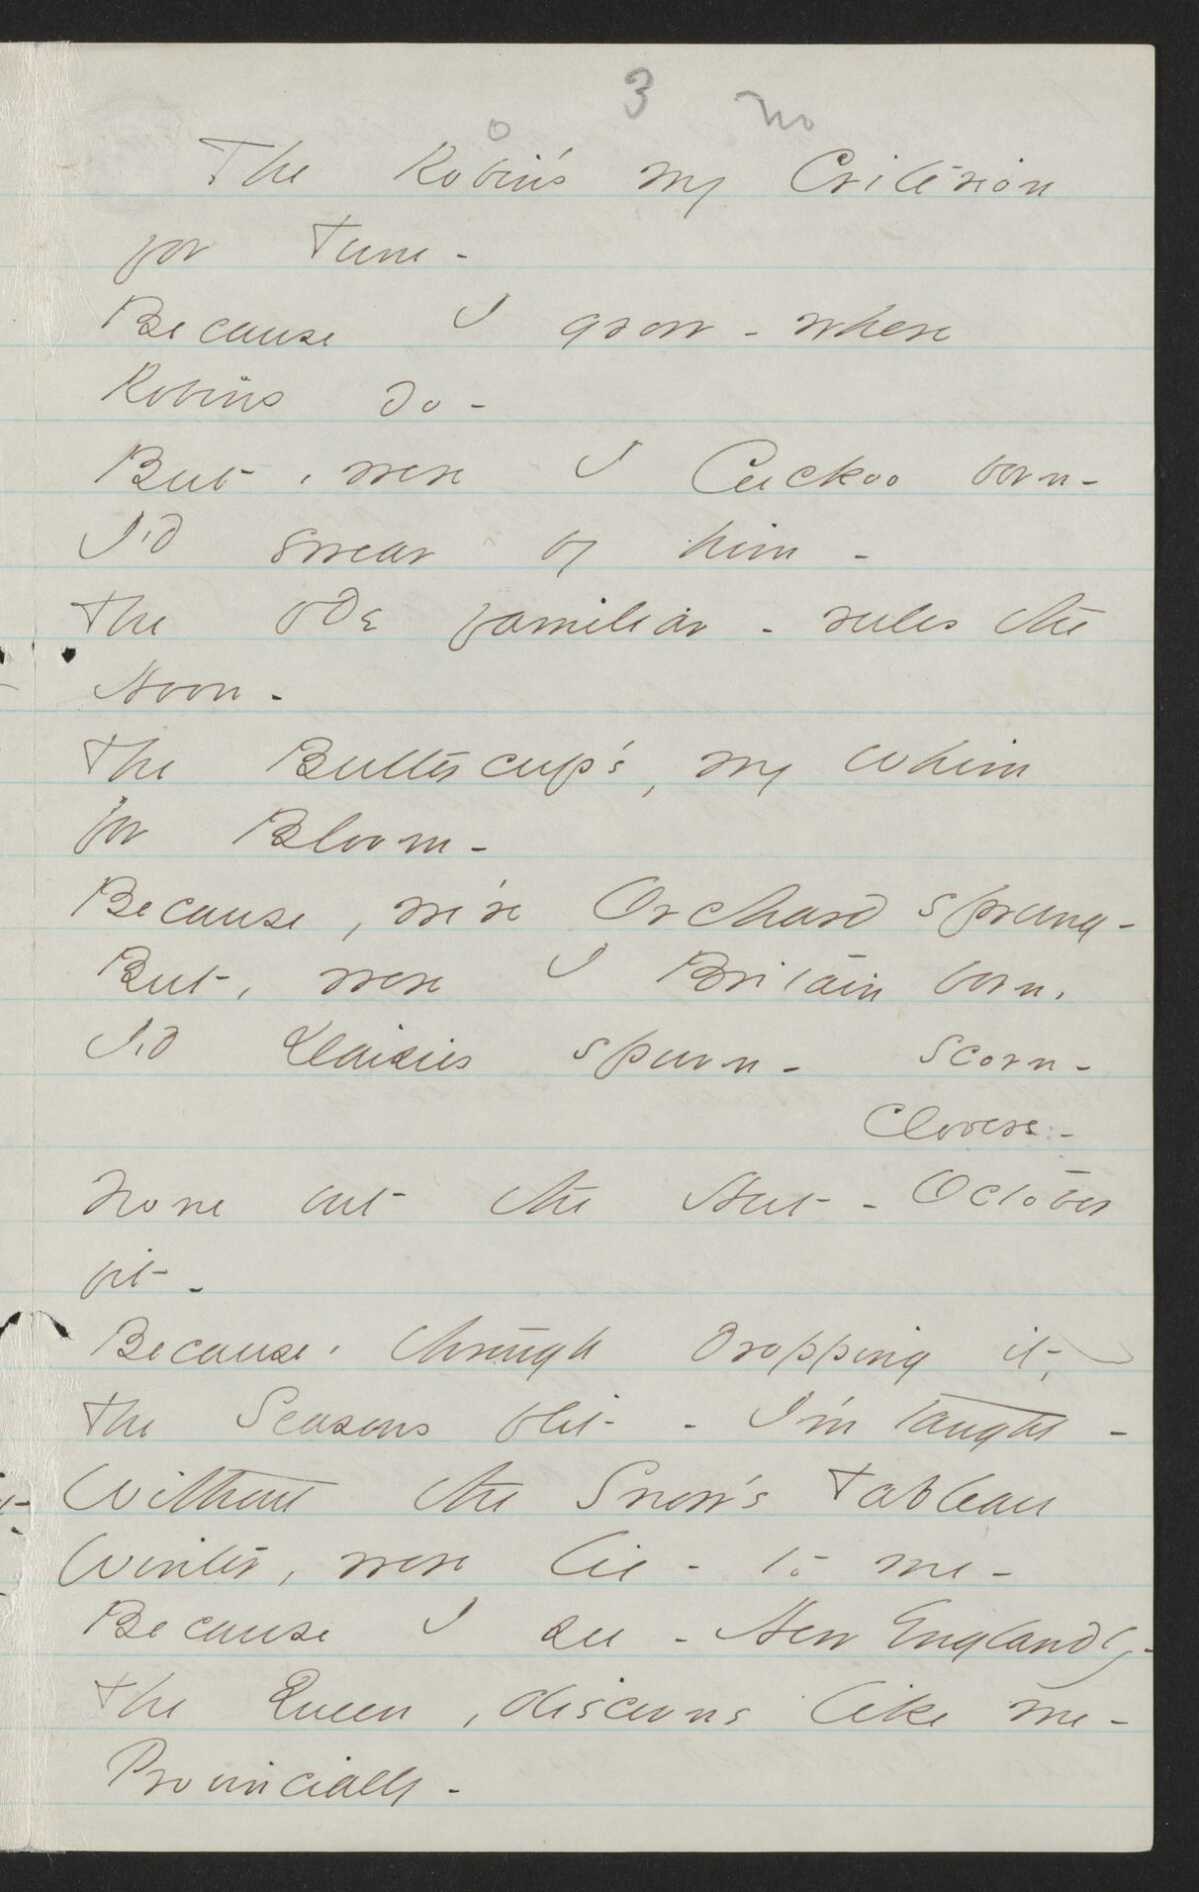 3 no
o
The Robin's my Criterion
for Tune -
Because I grow - where
Robins do -
But, were I Cuckoo born -
I'd swear by him -
The ode familiar - rules the
Noon -
The Buttercup's, my Whim
for Bloom -
Because, we're Orchard sprung -
But, were I Britain born,
I'd Daisies spurn - scorn -
Clovers -
None but the Nut - October
fit -
Because, through dropping it,
The Seasons flit - I'm taught -
Without the Snow's Tableau
Winter, were lie - to me -
Because I see - New Englandly -
The Queen, discerns like me -
Provincially -